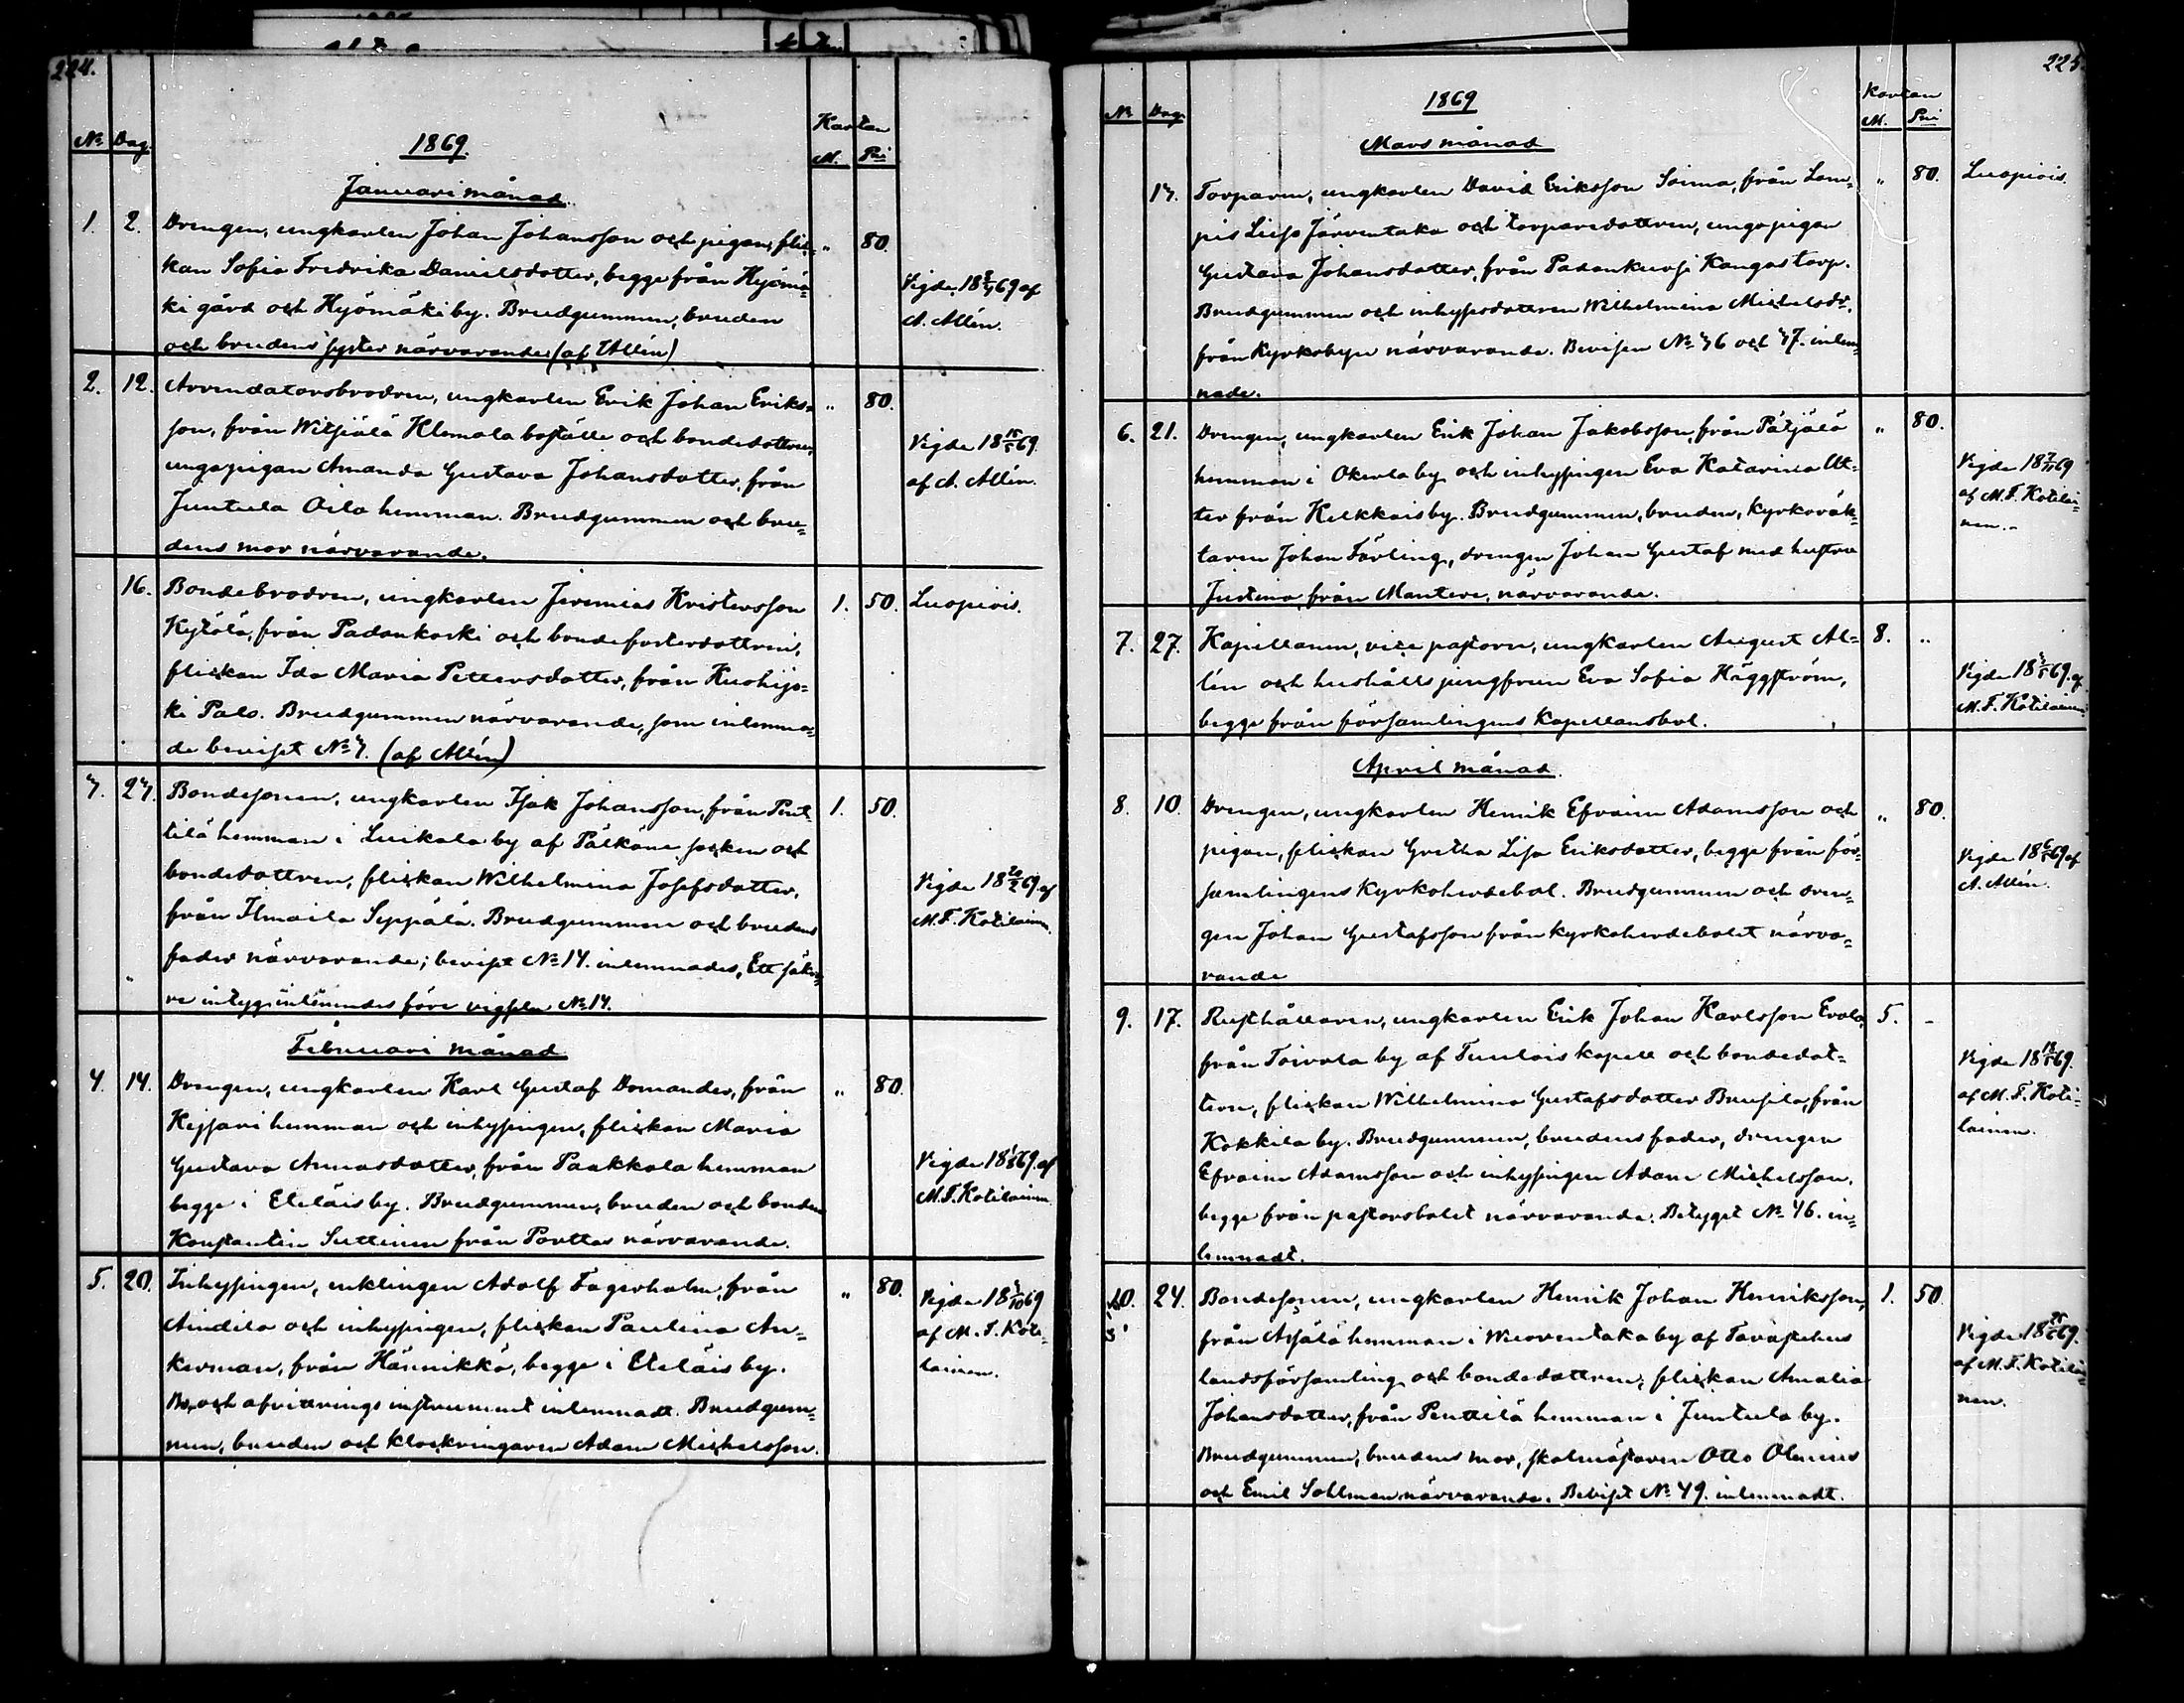 224.
1869.
Kartan
No Dag. M. Pni
Januari månad.
1. 2. Drengen, ungkarlen Johan Johansson och pigan, flic- „ 80.
kan Sofia Fredrika Danielsdotter, begge från Hyömä-
ki gård och Hyömäki by. Brudgummen, bruden
och brudens syster närvarande (af Allén)
Vigde 18 69 af
A. Allén.
2. 12. Arrendatorsbrodren, ungkarlen Erik Johan Eriks- „ 80.
son, från Witsiälä Klemola boställe och bondedottren,
ungapigan Amanda Gustava Johansdotter, från
Juntula Oila hemman. Brudgummen och bru-
dens mor närvarande.
Vigde 18 69.
af A. Allén.
16. Bondebrodren, ungkarlen Jeremias Kristersson 1. 50. Luopiois.
Kytölä, från Padankoski och bondefosterdottren,
flickan Ida Maria Pettersdotter, från Kuohijo-
ki Palo. Brudgummen närvarande, som inlemna-
de beviset No 7. (af Allén)
3. 23. Bondesonen, ungkarlen Isak Johansson, från Pent- 1. 50.
tilä hemman i Luikala by af Pälkäne socken och
bondedottren, flickan Wilhelmina Josefsdotter,
från Ilmoila Seppälä. Brudgummen och brudens
fader närvarande; beviset No 14. inlemnades. Ett säk-
re intyg inlemnades före vigseln No 14.
Vigde 18 69. af
M. F. Kotilainen.
Februari månad
4. 14. Drengen, ungkarlen Karl Gustaf Domander, från „ 80.
Keisari hemman och inhysingen, flickan Maria
Gustava Annasdotter, från Paakkola hemman
begge i Eteläis by. Brudgummen, bruden och bonden
Konstantin Suttinen från Porttas närvarande.
Vigde 18 69. af
M. F. Kotilainen
5. 20. Inhysingen, enklingen Adolf Fagerholm, från „ 80.
Aindila och inhysingen, flickan Paulina An-
kerman, från Hännikkä, begge i Eteläis by.
Bo- och afvittrings instrument inlemnadt. Brudgum-
men, bruden och klockringaren Adam Michelsson.
Vigde 18 69
af M. F. Koti-
lainen.
225.
1869
Kartan
No Dag. M. Pni
Mars månad
13. Torparen, ungkarlen David Eriksson Soima, från Lam- „ 80. Luopiois.
pis Lieso Järventaka och torparedottren, ungapigan
Gustava Johansdotter, från Padankurssi Kangas torp.
Brudgummen och inhysesdottren Wilhelmina Michelsdr.
från Kyrkobyn närvarande. Bevisen No 36 och 37. inlem-
nade.
6. 21. Drengen, ungkarlen Erik Johan Jakobsson, från Pätjälä „ 80.
hemman i Okerla by och inhysingen Eva Katarina At-
ter från Kelkkais by. Brudgummen, bruden, kyrkoväk-
taren Johan Färling, drengen Johan Gustaf med hustru
Justina, från Mantere, närvarande.
Vigde 18 69
af M. F. Kotilai-
nen.-
7. 27. Kapellanen, vice pastorn, ungkarlen August Al- 8. „
lén och hushålls jungfrun Eva Sofia Häggström,
begge från församlingens kapellansbol.
Vigde 18 69. af
M. F. Kotilainen
April månad.
8. 10. Drengen, ungkarlen Henrik Efraim Adamsson och „ 80.
pigan, flickan Gretha Lisa Eriksdotter, begge från för-
samlingens kyrkoherdebol. Brudgummen och dren-
gen Johan Gustafsson från kyrkoherdebolet närva-
rande
Vigde 18 69 af
A. Allén.
9. 17. Rusthållaren, ungkarlen Erik Johan Karlsson Erola, 5. -
från Toivola by af Tuulois kapell och bondedot-
tern, flickan Wilhelmina Gustafsdotter Brusila, från
Kokkila by. Brudgummen, brudens fader, drengen
Efraim Adamsson och inhysingen Adam Michelsson,
begge från pastorsbolet närvarande. Betyget No 46. in-
lemnadt.
Vigde 18 69.
af M. F. Koti-
lainen.
10. 24. Bondesonen, ungkarlen Henrik Johan Henriksson, 1. 50.
från Assälä hemman i Wuorentaka by af Tavastehus
landsförsamling och bondedottren, flickan Amalia
Johansdotter, från Penttilä hemman i Juntula by.
Brudgummen, brudens mor, skolmästaren Otto Olenius
och Emil Sohlman närvarande. Beviset No 49. inlemnadt.
Vigde 18 69.
af M. F. Kotilai-
nen.